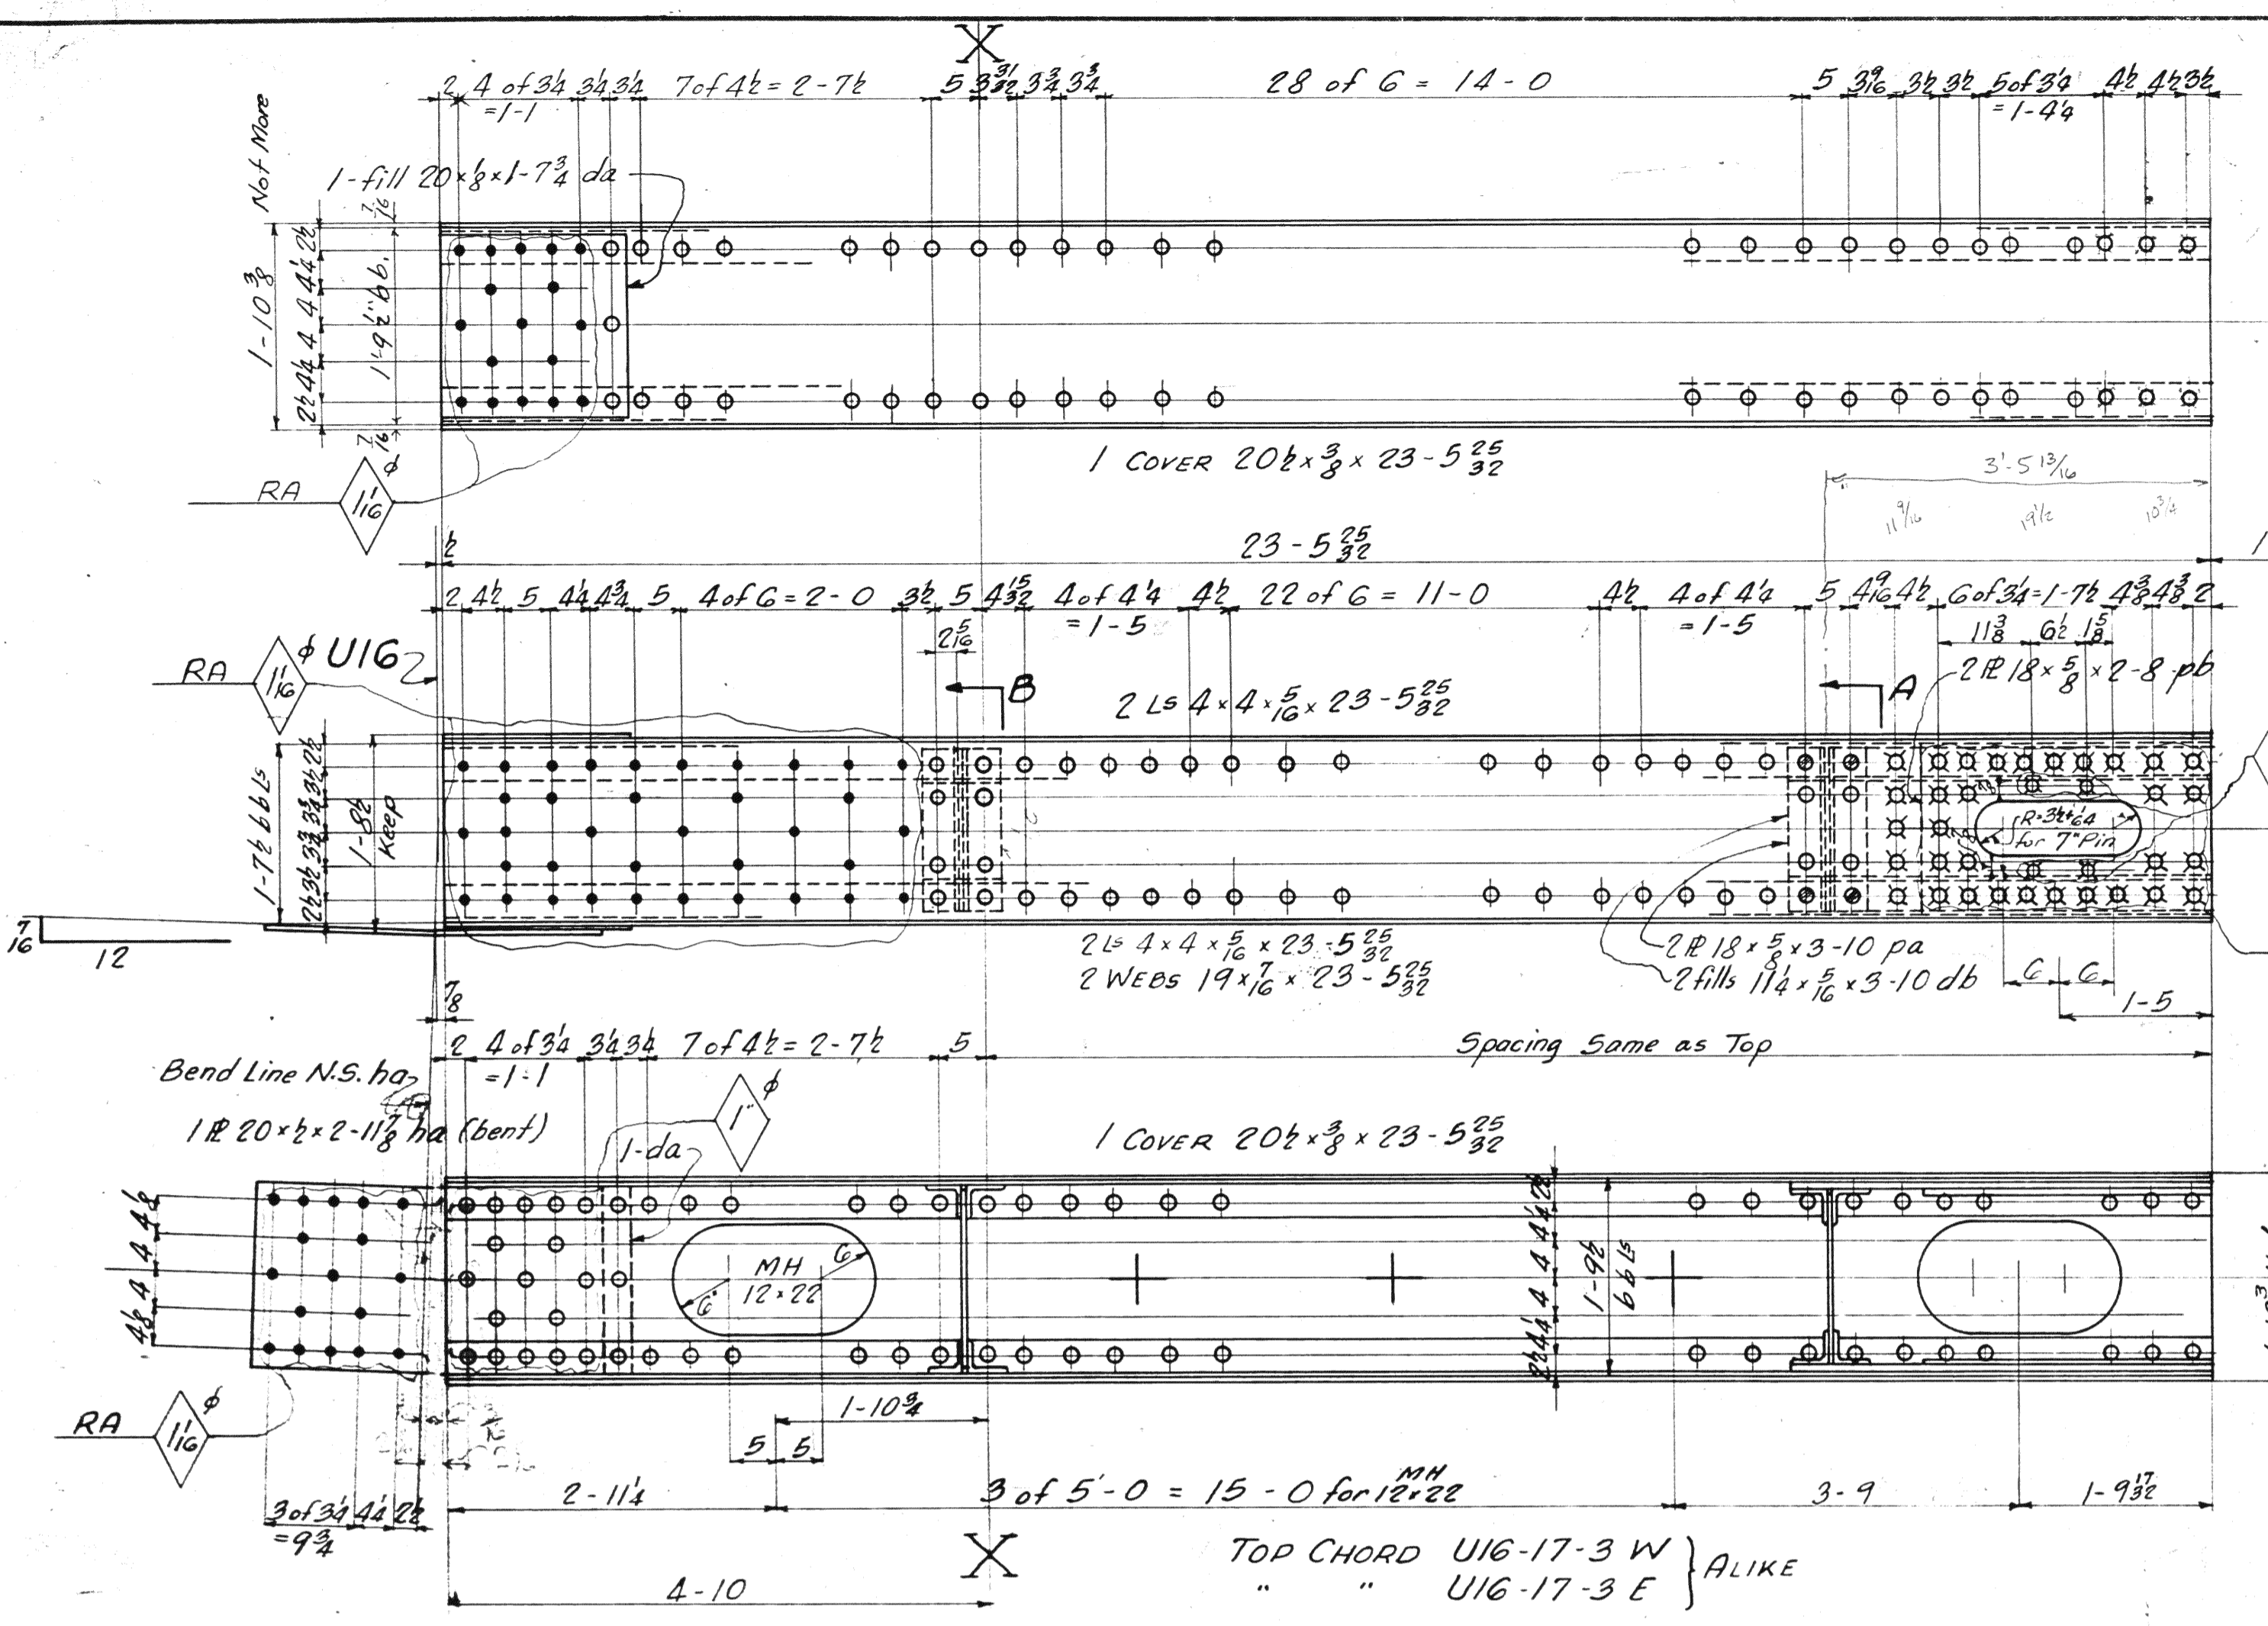 X
2 4 of 3¼ 3¼ 3¼ 7 of 4½ = 2-7½ 5 3 31/32 3¾ 3¾ 28 of 6 = 14-0 5 3 9/16 3½ 3½ 5 of 3¼ 4½ 4½ 3½
=1-1
=1-4¼
Not More
1-10 3/8
1-fill 20 x 1/8 x 1-7¾ da
7/16
2½ 4¼ 4 4 4¼ 2½
1'-9½" b b.
7/16
1 COVER 20½ x 3/8 x 23-5 25/32
RA
1 1/16 ϕ
3'-5 13/16
11 9/16 19½ 10¾
½
23-5 25/32
2 4½ 5 4¼ 4¾ 5 4 of 6 = 2-0 3½ 5 4 15/32 4 of 4¼ 4½ 22 of 6 = 11-0 4½ 4 of 4¼ 5 4 9/16 4½ 6 of 3¼ = 1-7½ 4 3/8 4 3/8 2
= 1-5
= 1-5
2 5/16
11 3/8 6½ 1 5/8
RA
1 1/16 ϕ
U16
B
A
2 Ls 4 x 4 x 5/16 x 23-5 25/32
2 PL 18 x 5/8 x 2-8 pb
1-7½ b b Ls
2½ 3½ 3¾ 3¾ 3½ 2½
1-8½
Keep
R=3½+1/64
for 7" Pin
7/16
12
2 Ls 4 x 4 x 5/16 x 23-5 25/32
2 WEBS 19 x 7/16 x 23-5 25/32
2 PL 18 x 5/8 x 3-10 pa
2 fills 11¼ x 5/16 x 3-10 db
6 6
1-5
7/8
2 4 of 3¼ 3¼ 3¼ 7 of 4½ = 2-7½ 5 Spacing Same as Top
=1-1
Bend Line N.S. ha
1 PL 20 x ½ x 2-11 7/8 ha (bent)
1-da
1" ϕ
1 COVER 20½ x 3/8 x 23-5 25/32
4 1/8 4 4 4 1/8
MH
12 x 22
6
6"
2½ 4¼ 4 4 4¼ 2½
1-9½
b b Ls
RA
1 1/16 ϕ
1-10¾
5 5
3 of 3¼ 4¼ 2½
=9¾
2-11¼
3 of 5'-0 = 15-0 for MH 12x22
3-9
1-9 17/32
X
4-10
TOP CHORD U16-17-3 W
" " U16-17-3 E
} ALIKE